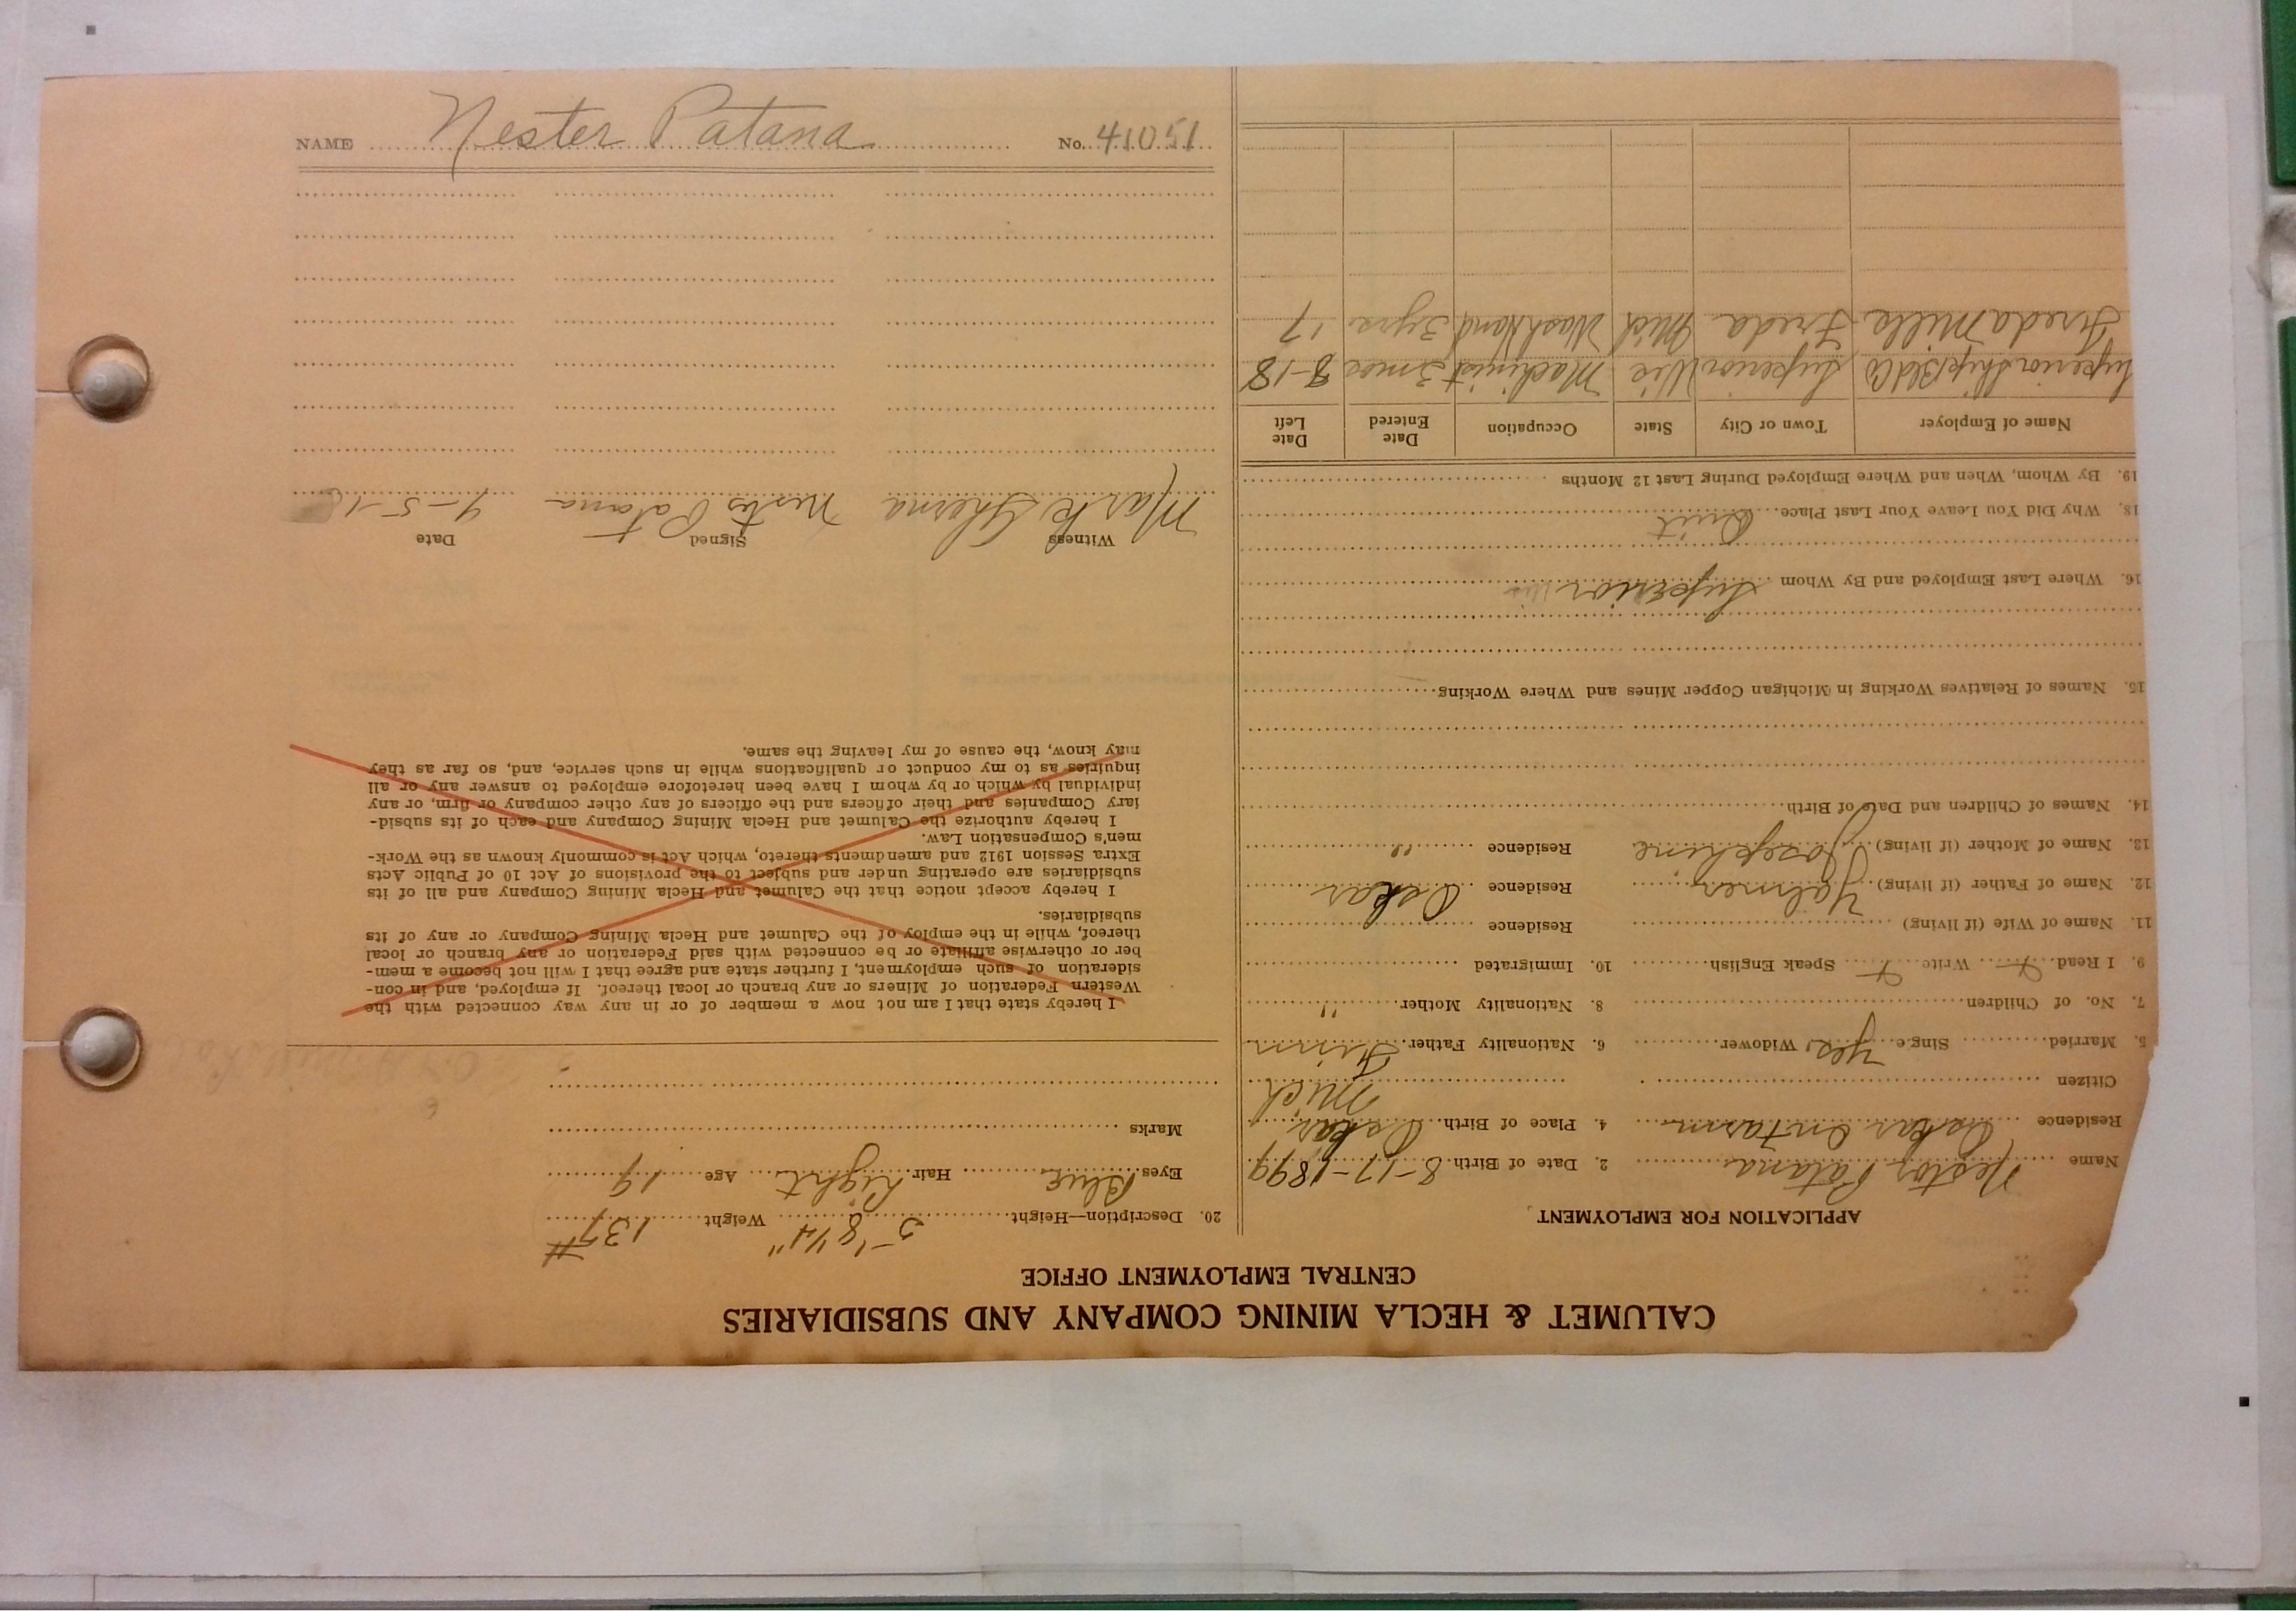 NAME Nester Patana No. 41051
CALUMET & HECLA MINING COMPANY AND SUBSIDIARIES
CENTRAL EMPLOYMENT OFFICE
APPLICATION FOR EMPLOYMENT
Name Nestor Patana 2. Date of Birth 8-17-1899
Residence Oskar Ontario 4. Place of Birth Oskar Mich
Citizen
5. Married Single yes Widower 6. Nationality Father Finn
7. No. of Children 8. Nationality Mother "
9. I Read Write Speak English 10. Immigrated
11. Name of Wife (if living) Residence
12. Name of Father (if living) Hjalmer Residence Oskar
13. Name of Mother (if living) Josephine Residence "
14. Names of Children and Date of Birth
15. Names of Relatives Working in Michigan Copper Mines and Where Working
16. Where Last Employed and By Whom Superior Wis
18. Why Did You Leave Your Last Place Quit
19. By Whom, When and Where Employed During Last 12 Months
Name of Employer Town or City State Occupation Date Entered Date Left
Superior Ship Bld Co Superior Wis Machinist 3 mos 8-18
Freda Mills Freda Mich Wash Hand 3 yrs 17
20. Description—Height 5-'8 1/4" Weight 137#
Eyes Blue Hair Light Age 19
Marks
I hereby state that I am not now a member of or in any way connected with the
Western Federation of Miners or any branch or local thereof. If employed, and in con-
sideration of such employment, I further state and agree that I will not become a mem-
ber or otherwise affiliate or be connected with said Federation or any branch or local
thereof, while in the employ of the Calumet and Hecla Mining Company or any of its
subsidiaries.
I hereby accept notice that the Calumet and Hecla Mining Company and all of its
subsidiaries are operating under and subject to the provisions of Act 10 of Public Acts
Extra Session 1912 and amendments thereto, which Act is commonly known as the Work-
men's Compensation Law.
I hereby authorize the Calumet and Hecla Mining Company and each of its subsid-
iary Companies and their officers and the officers of any other company or firm, or any
individual by which or by whom I have been heretofore employed to answer any or all
inquiries as to my conduct or qualifications while in such service, and, so far as they
may know, the cause of my leaving the same.
Witness Signed Date
Mark Nestor Patana 9-5-18